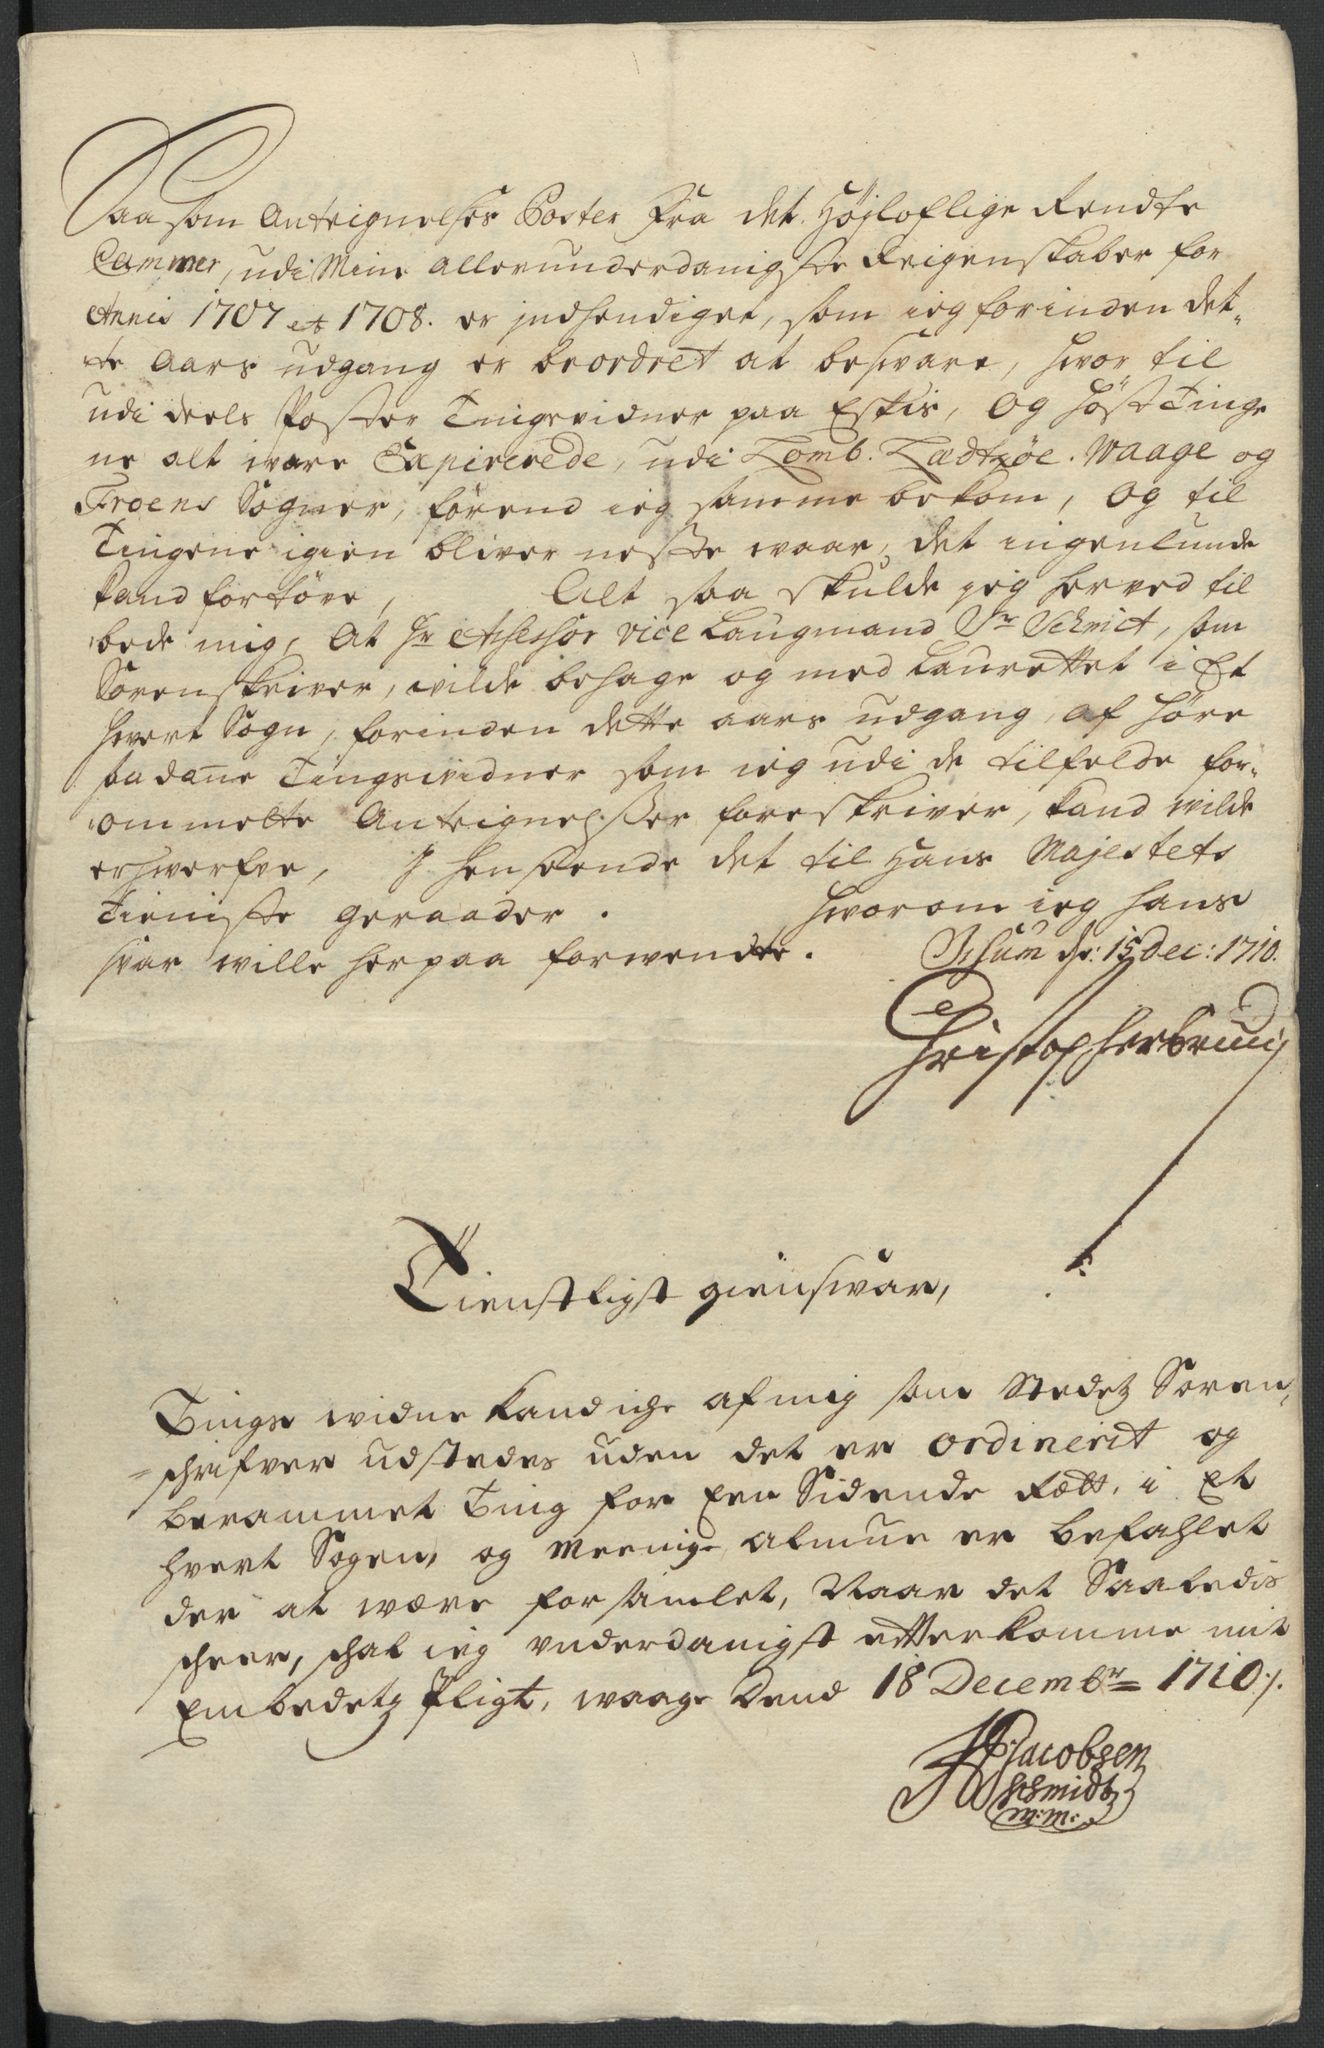 Saa som Anteignelses Poster Fra det Højloflige Rendte
Cammer, udi Mine allerunderdanigste Reigenskaber for
Annis 1707 et 1708. er jndhendiget, som ieg forinden det-
te Aars udgang er beordret at besvare, hvor til
udi deels Poster Tingsvidner paa Eskis, og Høst Tinge
ne alt ware Expirerede, udi Lomb. Lædtzøe. Waage og
Froens Sogner, førend ieg samme bekom, og til
Tingene igien bliver neste waar, det ingenlunde
kand fortøve, Alt saa skulde jeg herved til
bede mig, At Hr Assessor vice Laugmand Sr Schmit, som
Sorenskriver, wilde behage og med Laurettet i Et
hvert Sogn, forinden dette aars udgang, af høre
sadane Tingsvidner som ieg udi de tilfelde for-
ommelte Anteignelsser foreskriver, kand wilde
erhwerfve, J henseende det til Hans Majestets
Tieniste geraader. Hvorom ieg hans
svar wille herpaa forwendte. Schum d: 15 Dec: 1710.
Christopher Bruuj
Tienstligst giensvar,
Tings widne kand iche af mig som Stedetz Soren-
schrifver udstedes uden det er ordinerit og
berammet Ting for Een Sidende Rætt, i Et
hvert Sogen, og Meenige almue er befahlet
der at være forsamlet, Naar det Saaledis
scheer, schal ieg underdanigst efterkomme mit
Embedetz Pligt, waage Dend 18 Decembr 1710 ./.
Jacobsen
Schmidt
m:m: